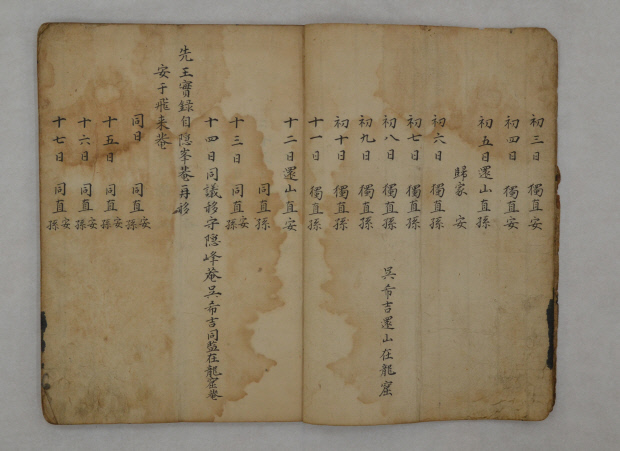 初三日 獨直安
初四日 獨直安
初五日還山直孫
歸家 安
初六日 獨直孫
初七日 獨直孫
初八日 獨直孫 吳希吉還山在龍窟
初九日 獨直孫
初十日 獨直孫
十一日 獨直孫
十二日還山直安
同直孫
十三日 同直安孫
十四日同議移守隠峰菴吳希吉同監在龍窟菴
先王實録自隠峯菴再移
安于飛来菴
同日 同直安孫
十五日 同直安孫
十六日 同直安孫
十七日 同直安孫